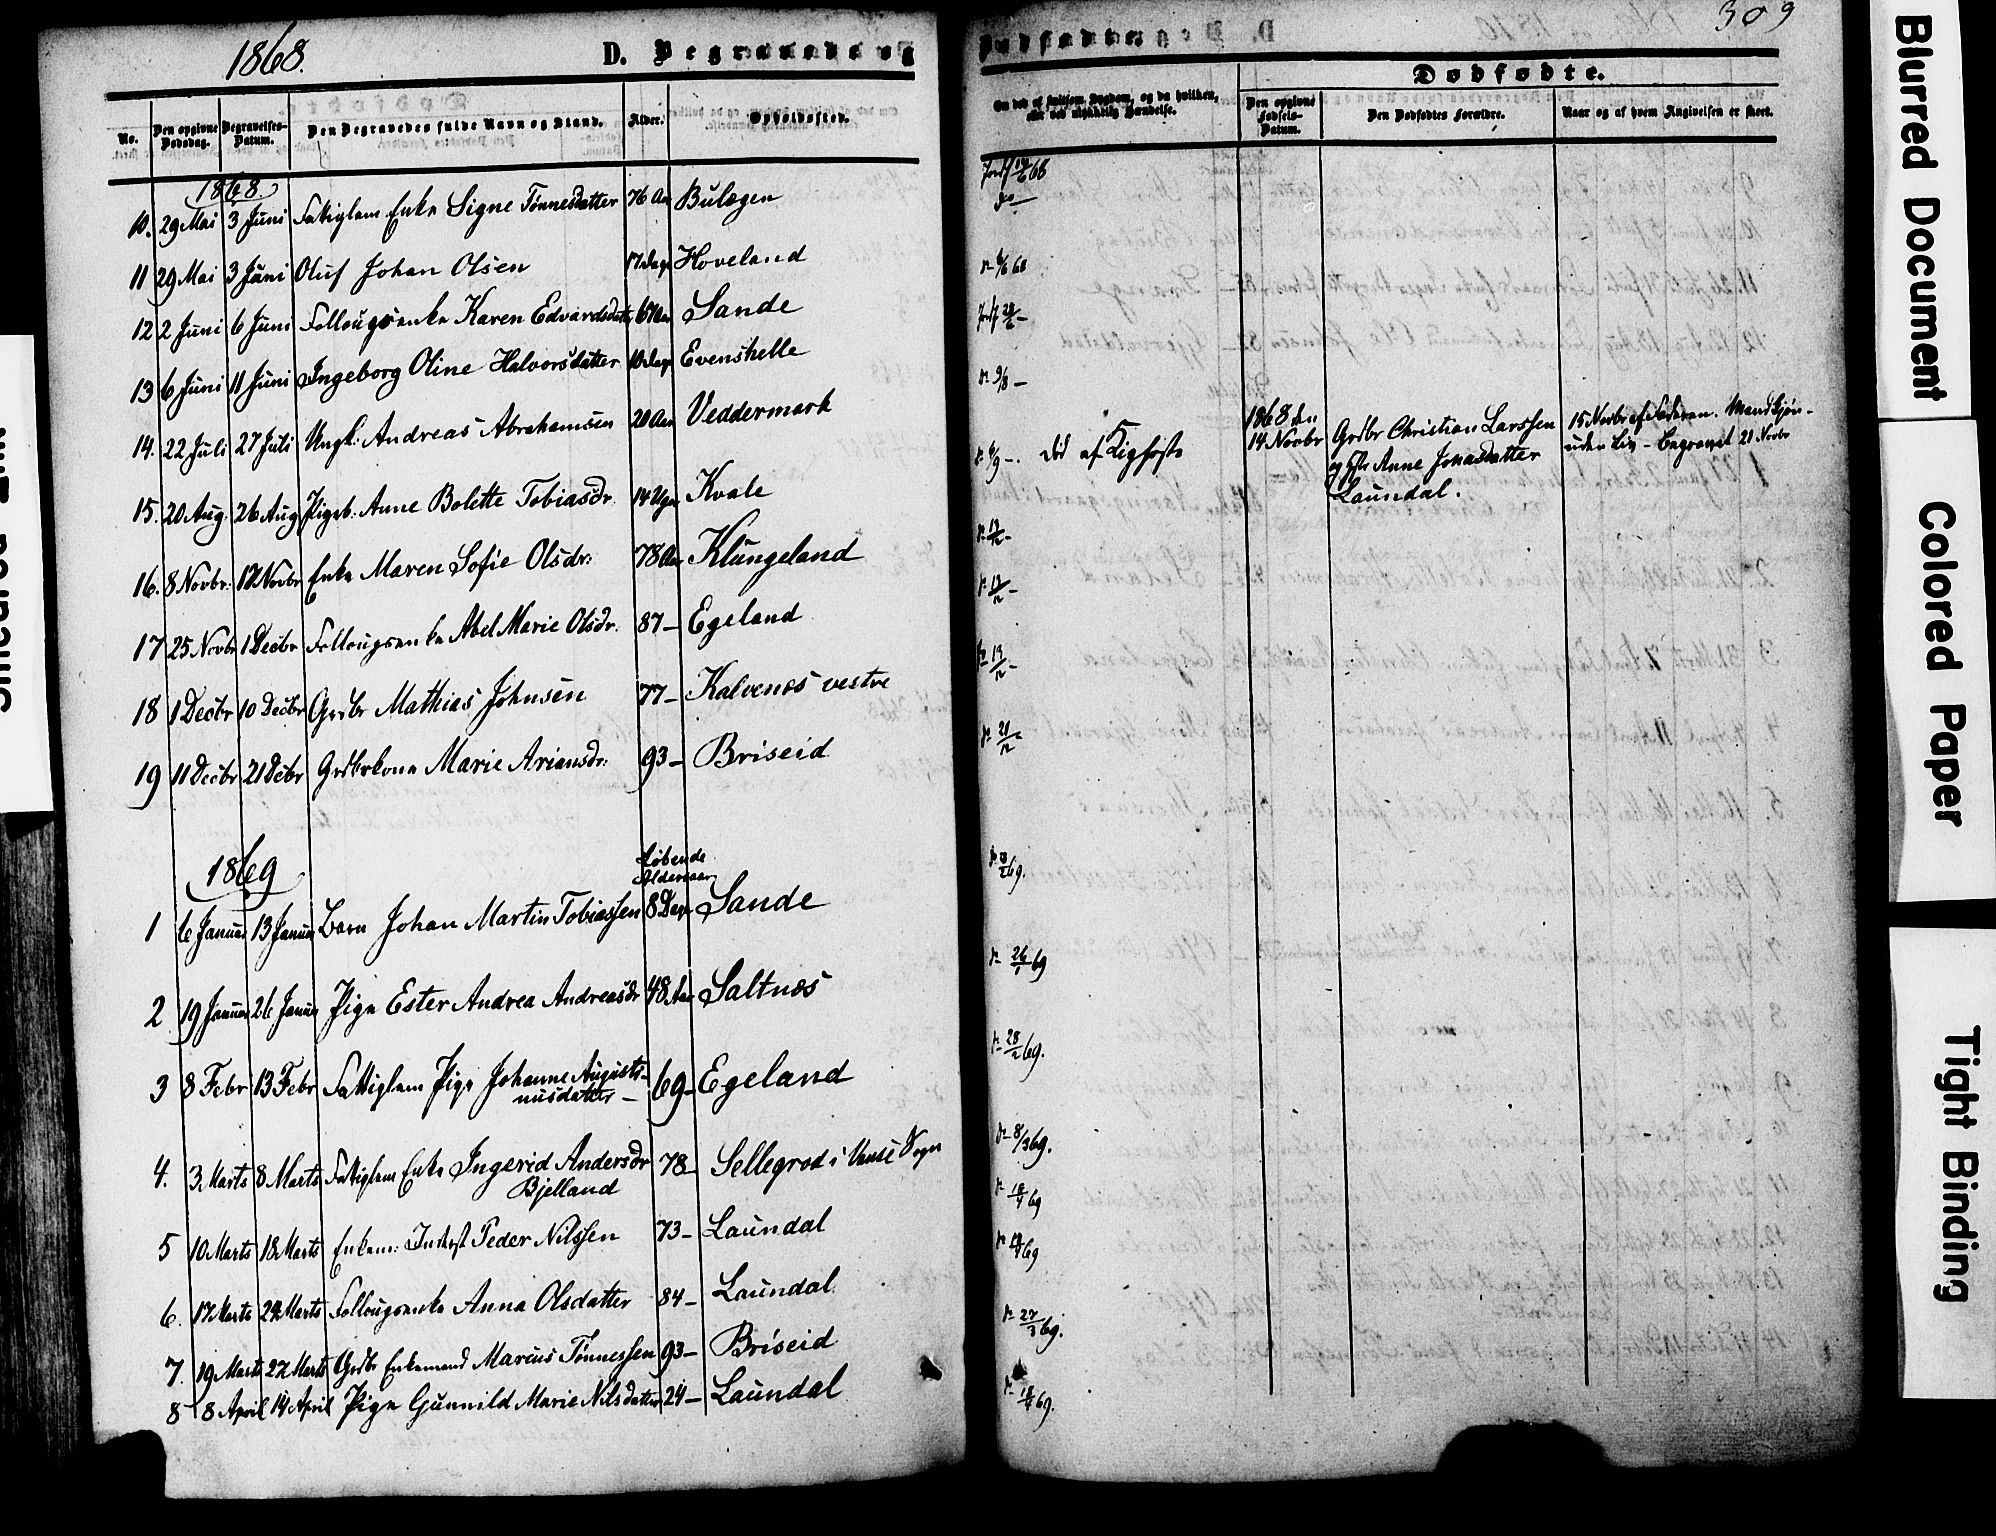 1868.
D. Begravede og
No.
Den opgivne Dødsdag.
Begravelses-Datum.
Den Begravedes fulde Navn og Stand.
Alder.
Opholdssted.
1868
10. 29 Mai 3 Juni Fattiglem Enke Signe Tønnesdatter 76 Aar Bulægen
11 29 Mai 3 Juni Oluf Johan Olsen 17 Dage Hoveland
12 2 Juni 6 Juni Follougsenke Karen Edvardsdatter 67 Aar Sande
13 6 Juni 11 Juni Ingeborg Oline Halvorsdatter Dage Evenshelle
14. 22 Juli 27 Juli Ungk: Andreas Abrahamsen 20 Aar Veddermark
15. 20 Aug. 26 Aug Pigeb. Anne Bolette Tobiasdr. 14 Uger Kvale
16. 8 Novbr. 17 Novbr Enke Maren Sofie Olsdr: 78 Aar Klungeland
17 25 Novbr 1 Decbr Follougsenke Abel Marie Olsdr. 87 – Egeland
18 1 Decbr 10 Decbr Grdbr Mathias Johnsen 77 – Kalvenes vestre
19 11 Decbr 21 Debr Grdbrkone Marie Ariansdr: 93 – Briseid
1869
Løbende
Aldersaar
1 6 Januar 13 Januar Barn Johan Martin Tobiassen 8 Dage Sande
2 19 Januar 26 Januar Pige Ester Andrea Andreasdr 48 Aar Saltnes
3 8 Febr 13 Febr Fattiglem Pige Johanne Augusti-
nusdatter – 69 – Egeland
4. 3 Marts 8 Marts Fattiglem Enke Ingerid Andersdr 78 Sellegrod i Vanse Sogn
Bjelland
5 10 Marts 18 Marts Enkem: Inderst Peder Nilssen 73 – Laundal
6. 17 Marts 24 Marts Follougsenke Anna Olsdatter 84 – Laundal
7. 19 Marts 27 Marts Grdbr Enkemand Marcus Tønnessen 93 – Briseid
8 8 April 14 April Pige Gunnild Marie Nilsdatter 24 – Laundal
309
Dødfødte.
Om død af smitsom Sygdom, og da hvilken, eller ved ulykkelig Hændelse.
Den opgivne Fødsels-Datum.
Den Dødfødtes Forældre.
Naar og af hvem Angivelsen er skeet.
død af Ligfost
1868 den
14 Novbr
Grdbr Christian Larssen
og Hstr Anne Jonasdatter
Laundal.
15 Novbr af Faderen. Mandkjøn –
uden Liv – Begravet 21 Novbr
26/1 69
28/2 69.
8/3 69.
27/3 69.
Blurred Document
Colored Paper
Tight Binding